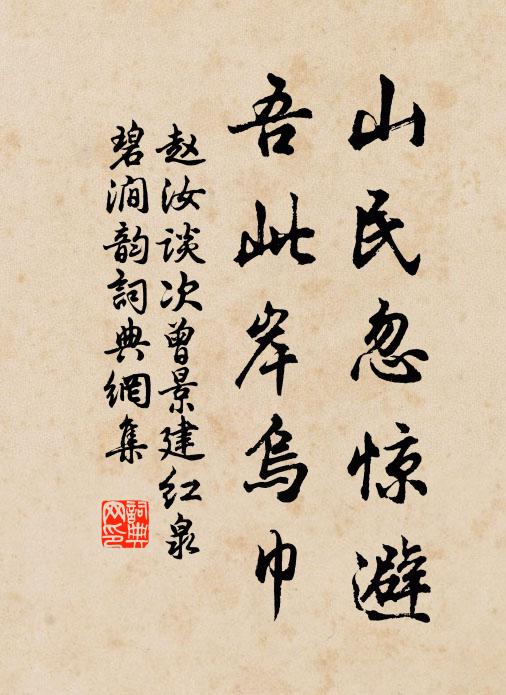 山民忽惊避
吾此岸乌巾
赵汝谈次曾景建红泉
碧澗韵詞典網集
詞典网印